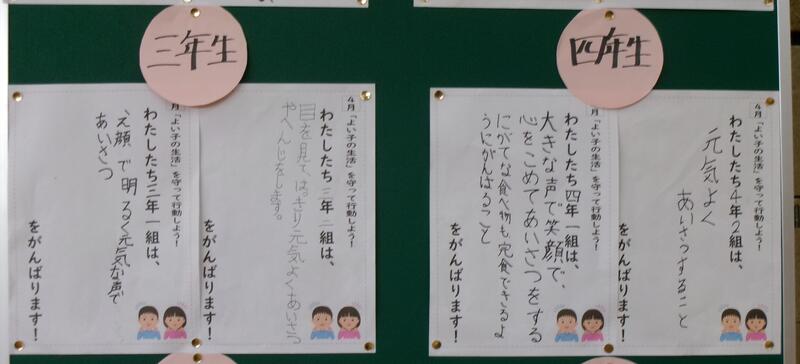 三年生
4月「よい子の生活」を守って行動しよう！
わたしたち三年二組は、
目を見て、はっきり元気よくあいさつ
やへんじをします。
をがんばります！
月「よい子の生活」を守って行動しよう！
わたしたち三年一組は、
笑顔で明るく元気な声で
あいさつ
をがんばります！
四年生
4月「よい子の生活」を守って行動しよう！
わたしたち4年2組は、
元気よく
あいさつすること
をがんばります！
月「よい子の生活」を守って行動しよう！
わたしたち四年一組は、
大きな声で笑顔で、
心をこめてあいさつをする
にがてな食べ物も完食できるよ
うにがんばること
をがんばります！